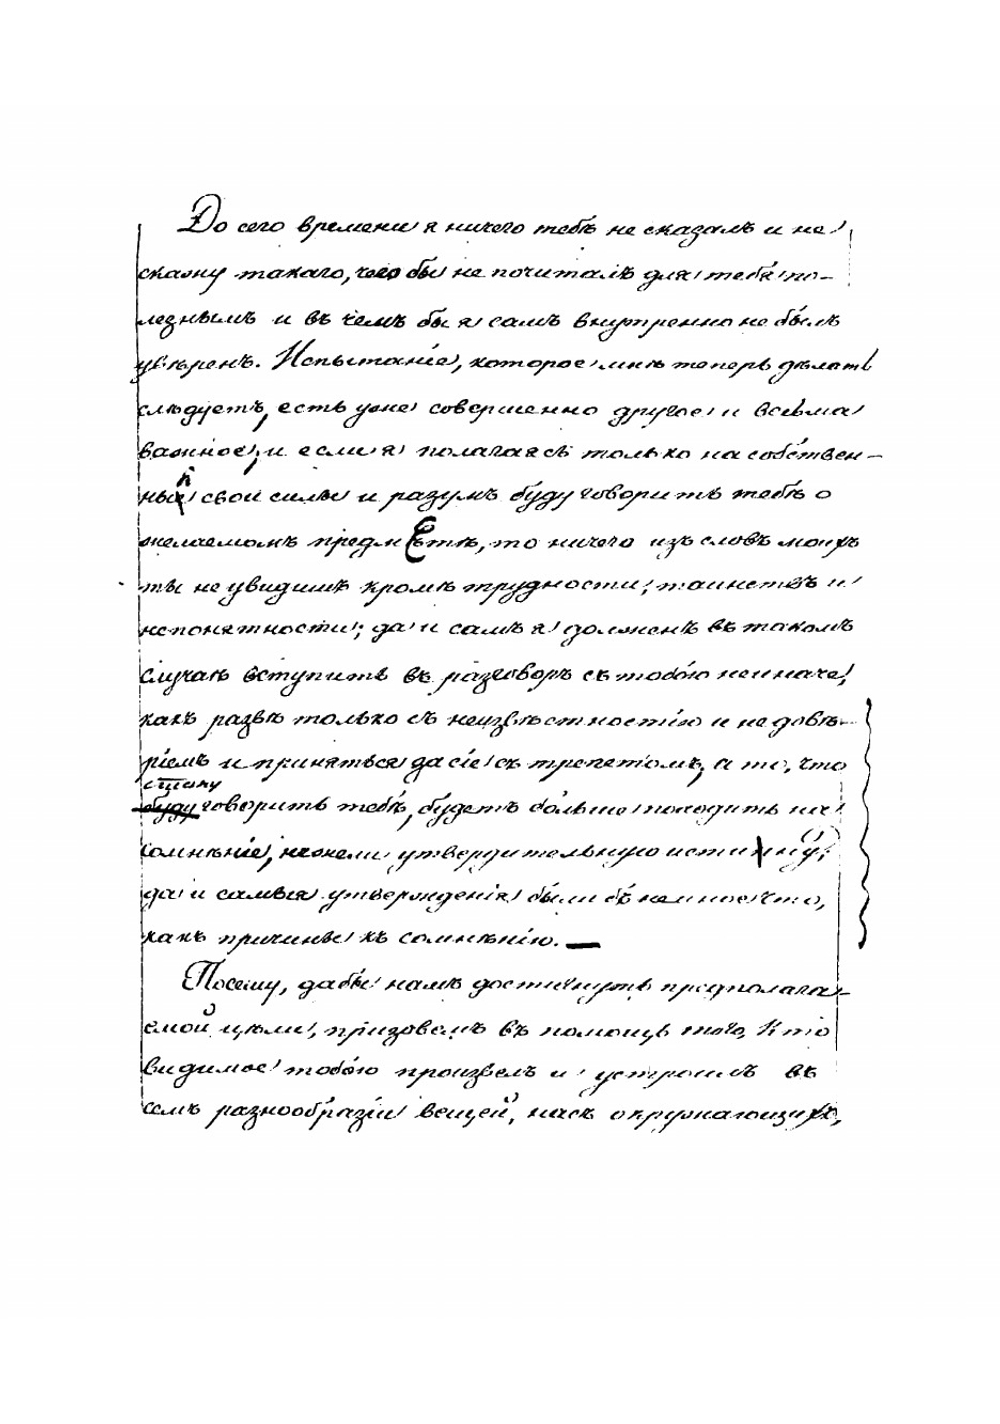 До сего времени я ничего тебѣ не сказалъ и не
скажу такаго, чего бы не почиталъ для тебя по-
лезнымъ и въ чемъ бы я самъ внутренно не былъ
увѣренъ. Испытаніе, которое мнѣ теперь дѣлать
слѣдуетъ, есть уже совершенно другое и весьма
важное, и если я полагаясь только на собствен-
ныя свои силы и разумъ буду говорить тебѣ о
желаемомъ предметѣ, то ничего изъ словъ моихъ
ты не увидишь кромѣ трудности, таинствъ и
непонятности; да и самъ я долженъ въ такомъ
случаѣ вступить въ разговоръ съ тобою неиначе,
какъ развѣ только съ неизвѣстностію и недовѣ-
ріемъ и приняться да сіе съ трепетомъ, а то, что
стану
буду говорить тебѣ, будетъ больше походить на
сомнѣніе, нежели утвердительную истинну;
да и самыя утвержденія были бъ неиноечто,
какъ причины къ сомнѣнію. —
Посему, дабы намъ достигнуть предполага-
емой цѣли, призовемъ въ помощь того, Кто
видимое тобою произвелъ и устроилъ въ
семъ разнообразіи вещей, насъ окружающихъ,